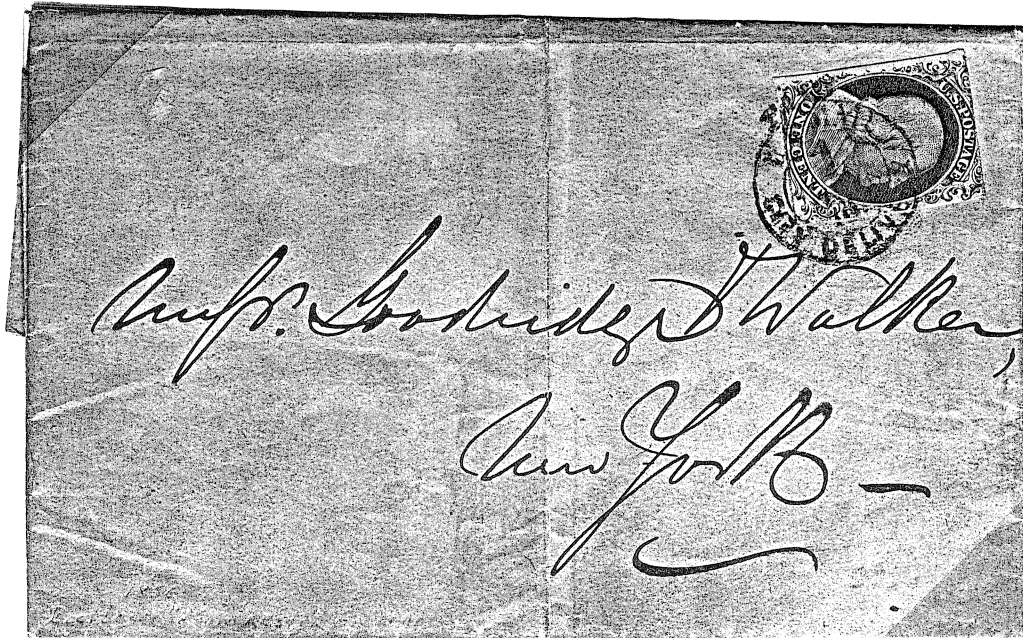 U.S. POSTAGE
ONE CENT
CITY DELIV
Messrs. Goodridge & Walker,
New York —